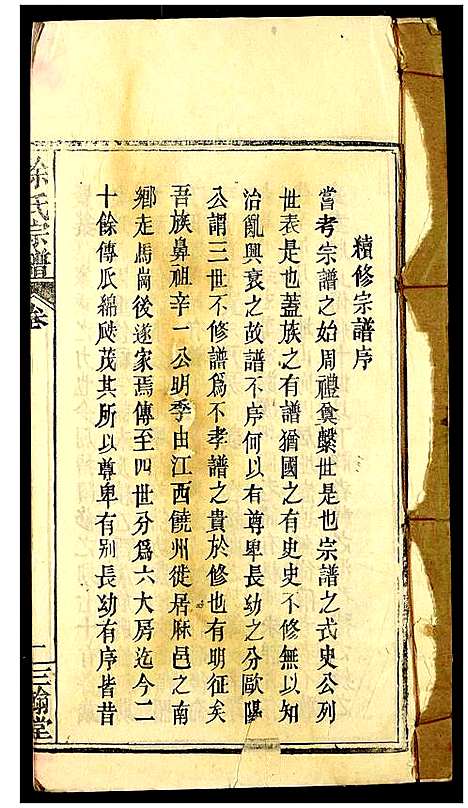 續修宗譜序
嘗考宗譜之始周禮奠繫世是也宗譜之式史公列
世表是也蓋族之有譜猶國之有史史不修無以知
治亂興衰之故譜不序何以有尊卑長幼之分歐陽
公謂三世不修譜爲不孝譜之貴於修也有明征矣
吾族鼻祖辛一公明季由江西饒州徙居麻邑之南
鄉走馬崗後遂家焉傳至四世分爲六大房迄今二
十餘傳瓜綿瓞茂其所以尊卑有別長幼有序皆昔
氏宗譜
卷
二
三翰堂